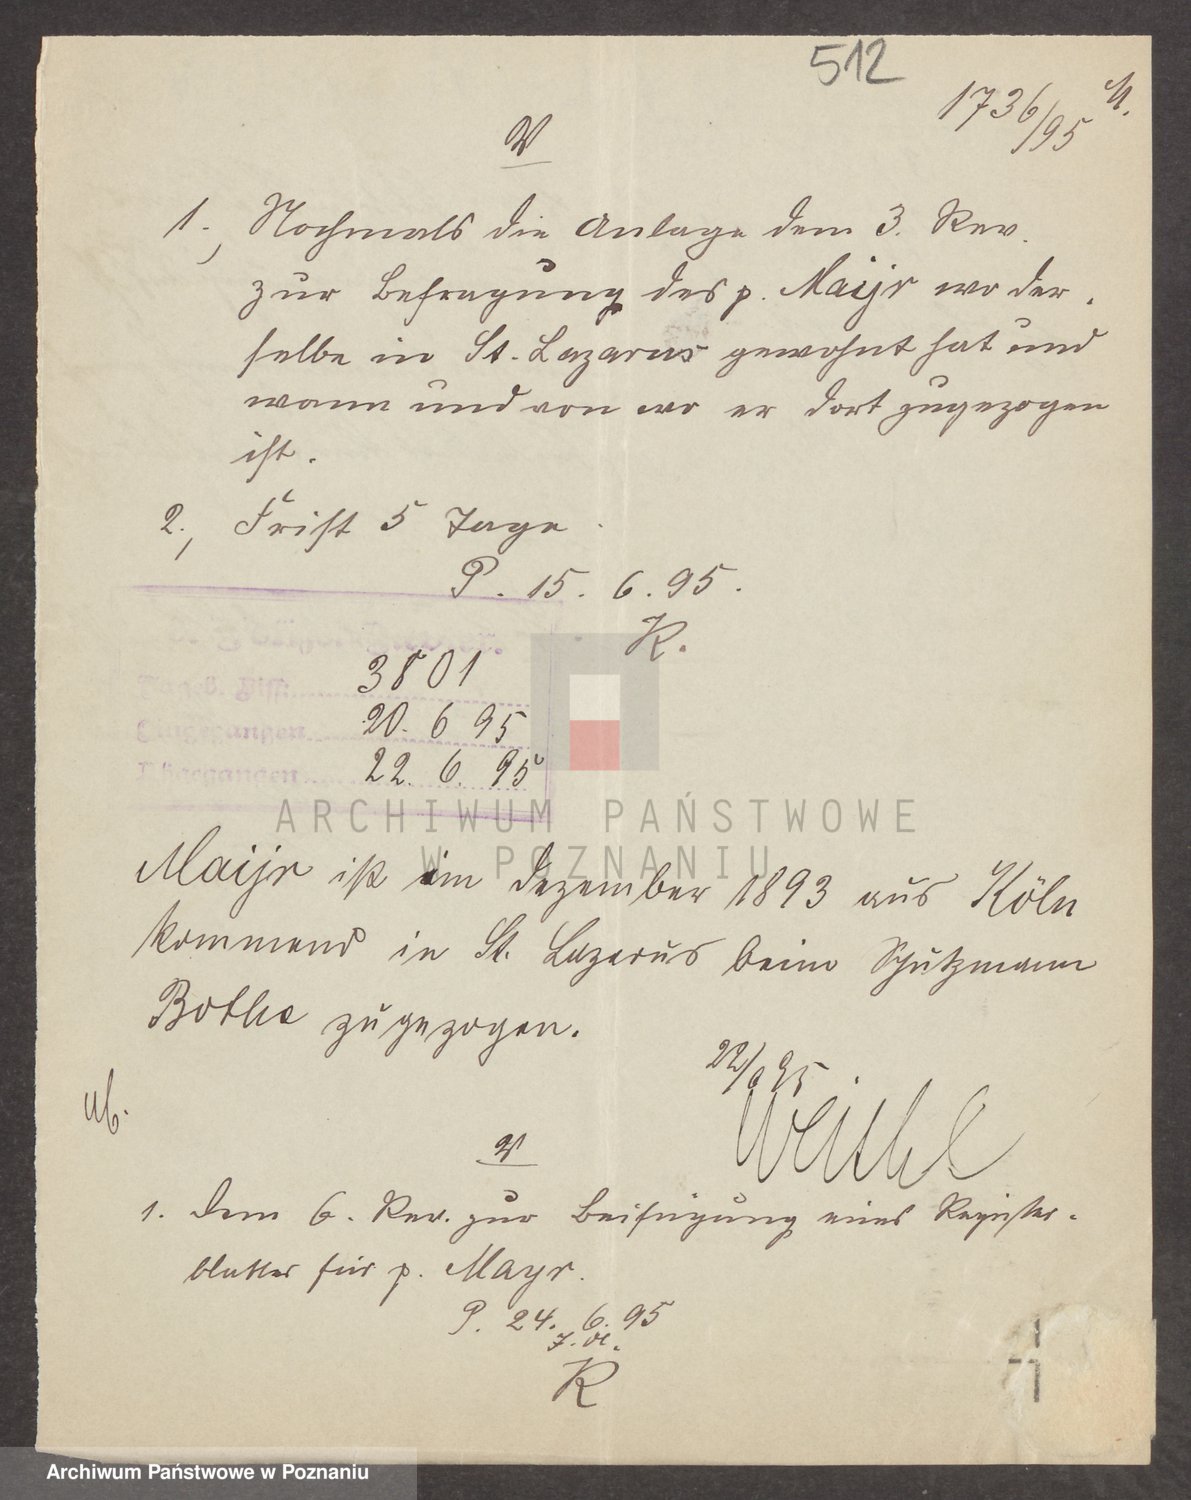 512
1736/95 M.
V
1., Nochmals die Anlage dem 3. Rev.
zur Befragung des p. Maijr wo der-
selbe in St. Lazarus gewohnt hat und
wann und von wo er dort zugezogen
ist.
2., Frist 5 Tage
P. 15. 6. 95.
K.
3801
Eingegangen 20. 6 95
Abgegangen 22. 6. 95
Maijr ist im Dezember 1893 aus Köln
kommend in St. Lazarus beim Schutzmann
Bothe zugezogen.
22/6 95
V
1. Dem 6. Rev. zur Beifügung eines Register-
blattes für p. Mayr.
P. 24. 6. 95
K
ARCHIWUM PAŃSTWOWE
W POZNANIU
Archiwum Państwowe w Poznaniu